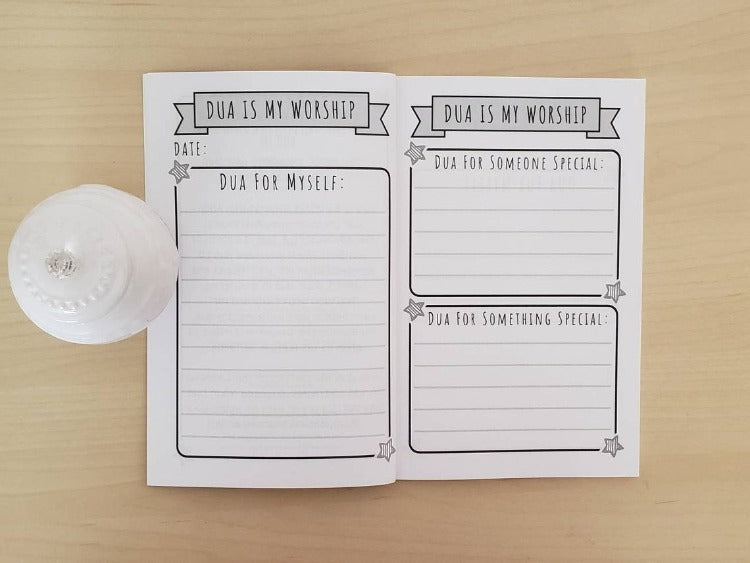 DUA IS MY WORSHIP
DATE:
DUA FOR MYSELF:
DUA IS MY WORSHIP
DUA FOR SOMEONE SPECIAL:
DUA FOR SOMETHING SPECIAL: